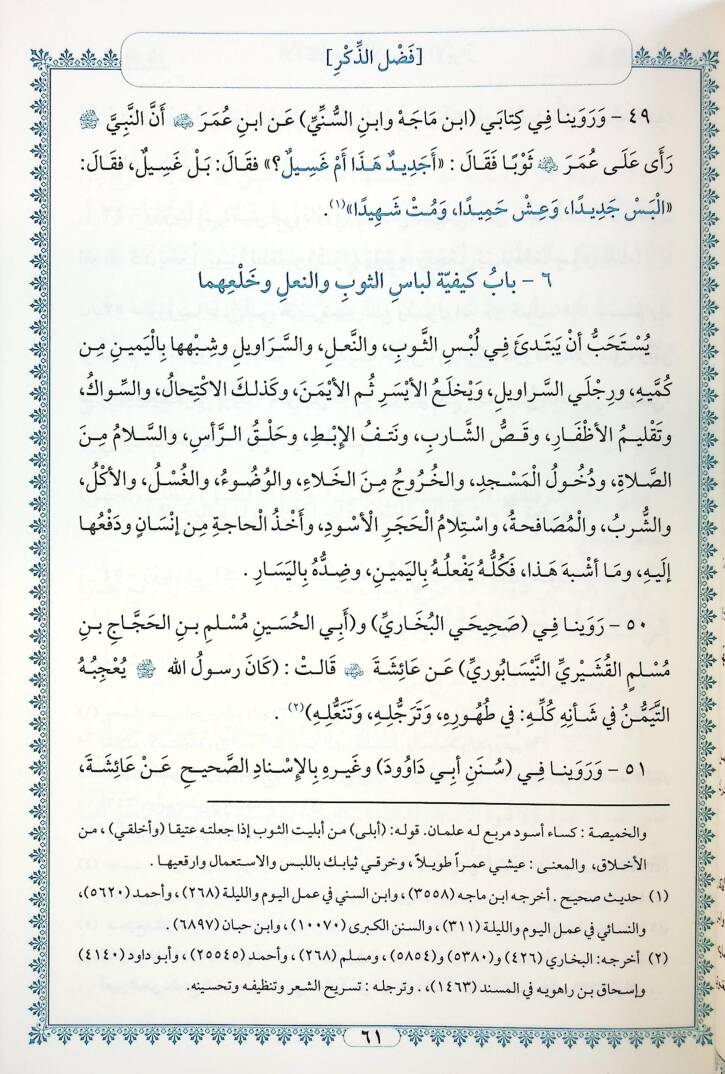 [فَضْل الذِّكْرِ]
٤٩ - وَرَوَينا فِي كِتابَي (ابن مَاجَهْ وابنِ السُّنِّيِّ) عَن ابنِ عُمَرَ ﷺ أَنَّ النَّبِيَّ ﷺ
رَأى عَلَى عُمَرَ ثَوْبًا فَقَالَ : «أَجَدِيدٌ هَذَا أَمْ غَسِيلٌ؟» فقَالَ: بَلْ غَسِيلٌ، فقَالَ:
«الْبَسْ جَدِيدًا، وَعِشْ حَمِيدًا، وَمُتْ شَهِيدًا»(١).
٦ - بابُ كيفيّة لباسِ الثوبِ والنعلِ وخَلْعِهما
يُسْتَحَبُّ أنْ يَبْتَدئَ فِي لُبْسِ الثَّوبِ، والنَّعلِ، والسَّراويلِ وشِبْهِها بِالْيَمينِ مِن
كُمَّيهِ، ورِجْلَي السَّراويلِ، وَيْخلَعُ الأيْسَرِ ثُم الأيْمَنَ، وكَذلكَ الاكْتِحالُ، والسِّواكُ،
وتَقْليمُ الأظْفَارِ، وقَصُّ الشَّاربِ، ونَتفُ الإبْطِ، وحَلْقُ الرَّأسِ، والسَّلامُ مِنَ
الصَّلاةِ، ودُخُولُ الْمَسْجدِ، والخُرُوجُ مِنَ الخَلاءِ، والوُضُوءُ، والغُسْلُ، والأكْلُ،
والشُّربُ، والْمُصَافحةُ، واسْتِلامُ الْحَجَرِ الأسْودِ، وأخْذُ الْحاجةِ مِن إنْسَانٍ ودَفْعُها
إلَيهِ، ومَا أشْبهَ هَذا، فَكُلُّهُ يَفْعلُهُ بِاليَمينِ، وضِدُّهُ بِاليَسَارِ .
٥٠ - رَوَينا فِي (صَحِيحَي البُخَاريِّ) و(أَبي الحُسَينِ مُسْلمِ بنِ الحَجَّاجِ بنِ
مُسْلمٍ القُشَيْريِّ النَّيْسَابُوريِّ) عَن عَائِشَةَ قالتْ : (كَانَ رسولُ الله ﷺ يُعْجِبُهُ
التَّيَمُّنُ في شَأنِه كُلِّهِ: في طُهُورِهِ، وَتَرَجُّلِهِ، وَتَنَعُّلِهِ)(٢) .
٥١ - وَرَوَينا فِي (سُنَنِ أبي دَاوُودَ) وغَيرِهِ بِالإسْنادِ الصَّحيحِ عَنْ عَائِشَةَ،
والخميصة : كساء أسود مربع له علمان. قوله: (أبلى) من أبليت الثوب إذا جعلته عتيقا (وأخلقي) ، من
الأخلاق، والمعنى : عيشي عمراً طويلاً، وخرقي ثيابك باللبس والاستعمال وارقعيها .
(١) حديث صحيح . أخرجه ابن ماجه (٣٥٥٨)، وابن السني في عمل اليوم والليلة (٢٦٨) ، وأحمد (٥٦٢٠)،
والنسائي في عمل اليوم والليلة (٣١١)، والسنن الكبرى (١٠٠٧٠) ، وابن حبان (٦٨٩٧) .
(٢) أخرجه: البخاري (٤٢٦) و(٥٣٨٠) و(٥٨٥٤) ، ومسلم (٢٦٨)، وأحمد (٢٥٥٤٥) ، وأبو داود (٤١٤٠)
وإسحاق بن راهويه في المسند (١٤٦٣)،. وترجله : تسريح الشعر وتنظيفه وتحسينه.
٦١